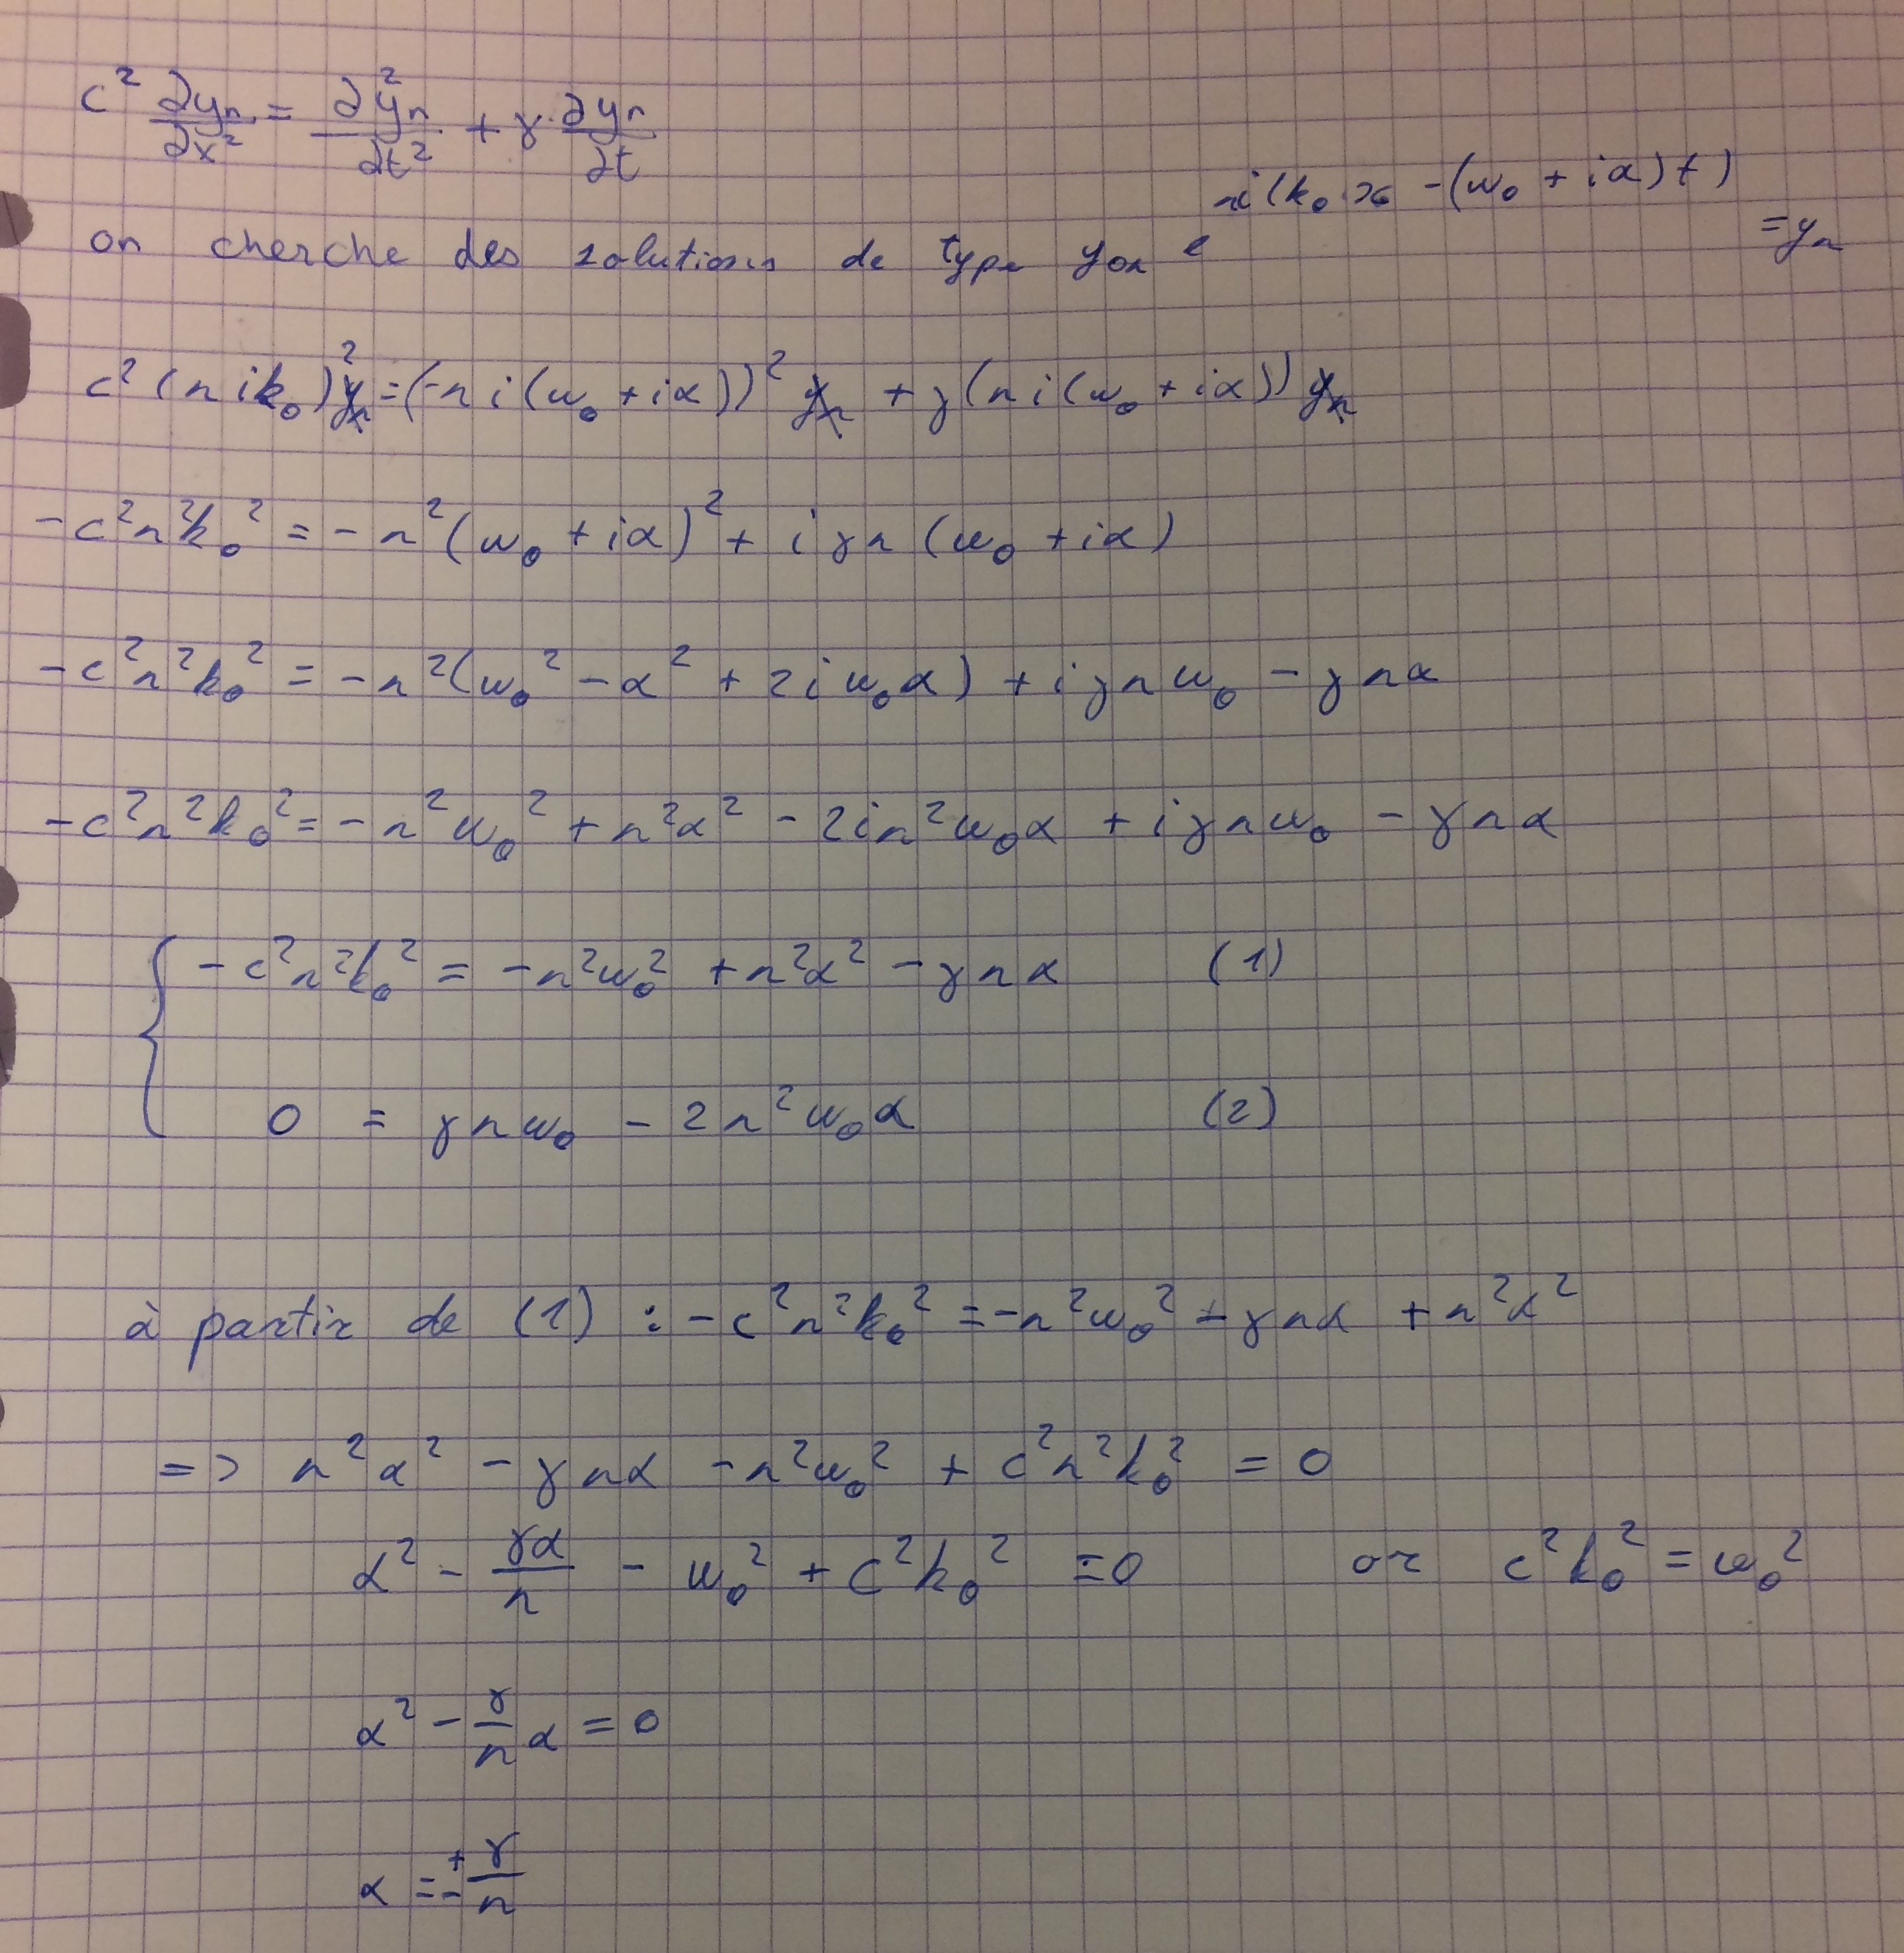 c² ∂yₙ/∂x² = ∂²yₙ/∂t² + γ · ∂yₙ/∂t
on cherche des solutions de type y₀ₙ e^(ni(k₀x - (ω₀ + iα)t)) = yₙ
c²(nik₀)²yₙ = (-ni(ω₀ + iα))² yₙ + γ(ni(ω₀ + iα)) yₙ
-c²n²k₀² = -n²(ω₀ + iα)² + iγn(ω₀ + iα)
-c²n²k₀² = -n²(ω₀² - α² + 2iω₀α) + iγnω₀ - γnα
-c²n²k₀² = -n²ω₀² + n²α² - 2in²ω₀α + iγnω₀ - γnα
{ -c²n²k₀² = -n²ω₀² + n²α² - γnα (1)
0 = γnω₀ - 2n²ω₀α (2)
à partir de (1) : -c²n²k₀² = -n²ω₀² - γnα + n²α²
=> n²α² - γnα - n²ω₀² + c²n²k₀² = 0
α² - γα/n - ω₀² + c²k₀² = 0 or c²k₀² = ω₀²
α² - γ/n α = 0
α = ± γ/n